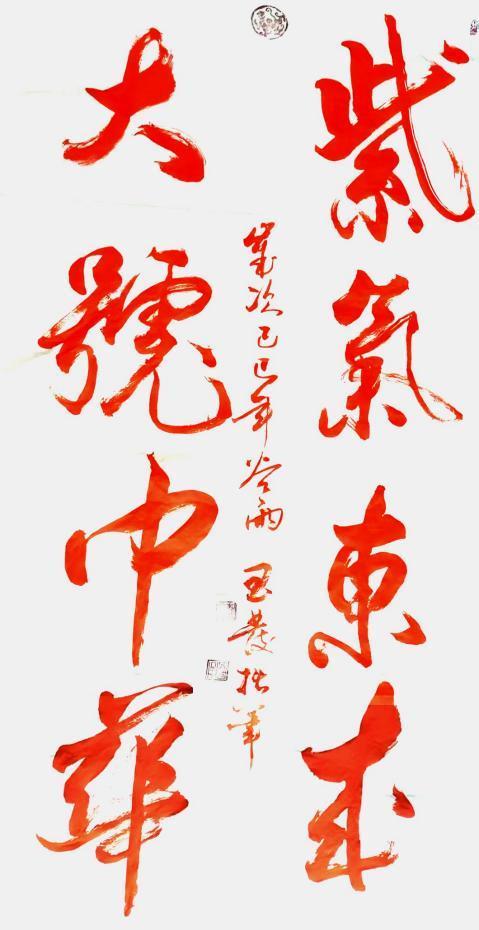 紫氣東來
大號中華
歲次己巳年谷雨 玉發拙筆